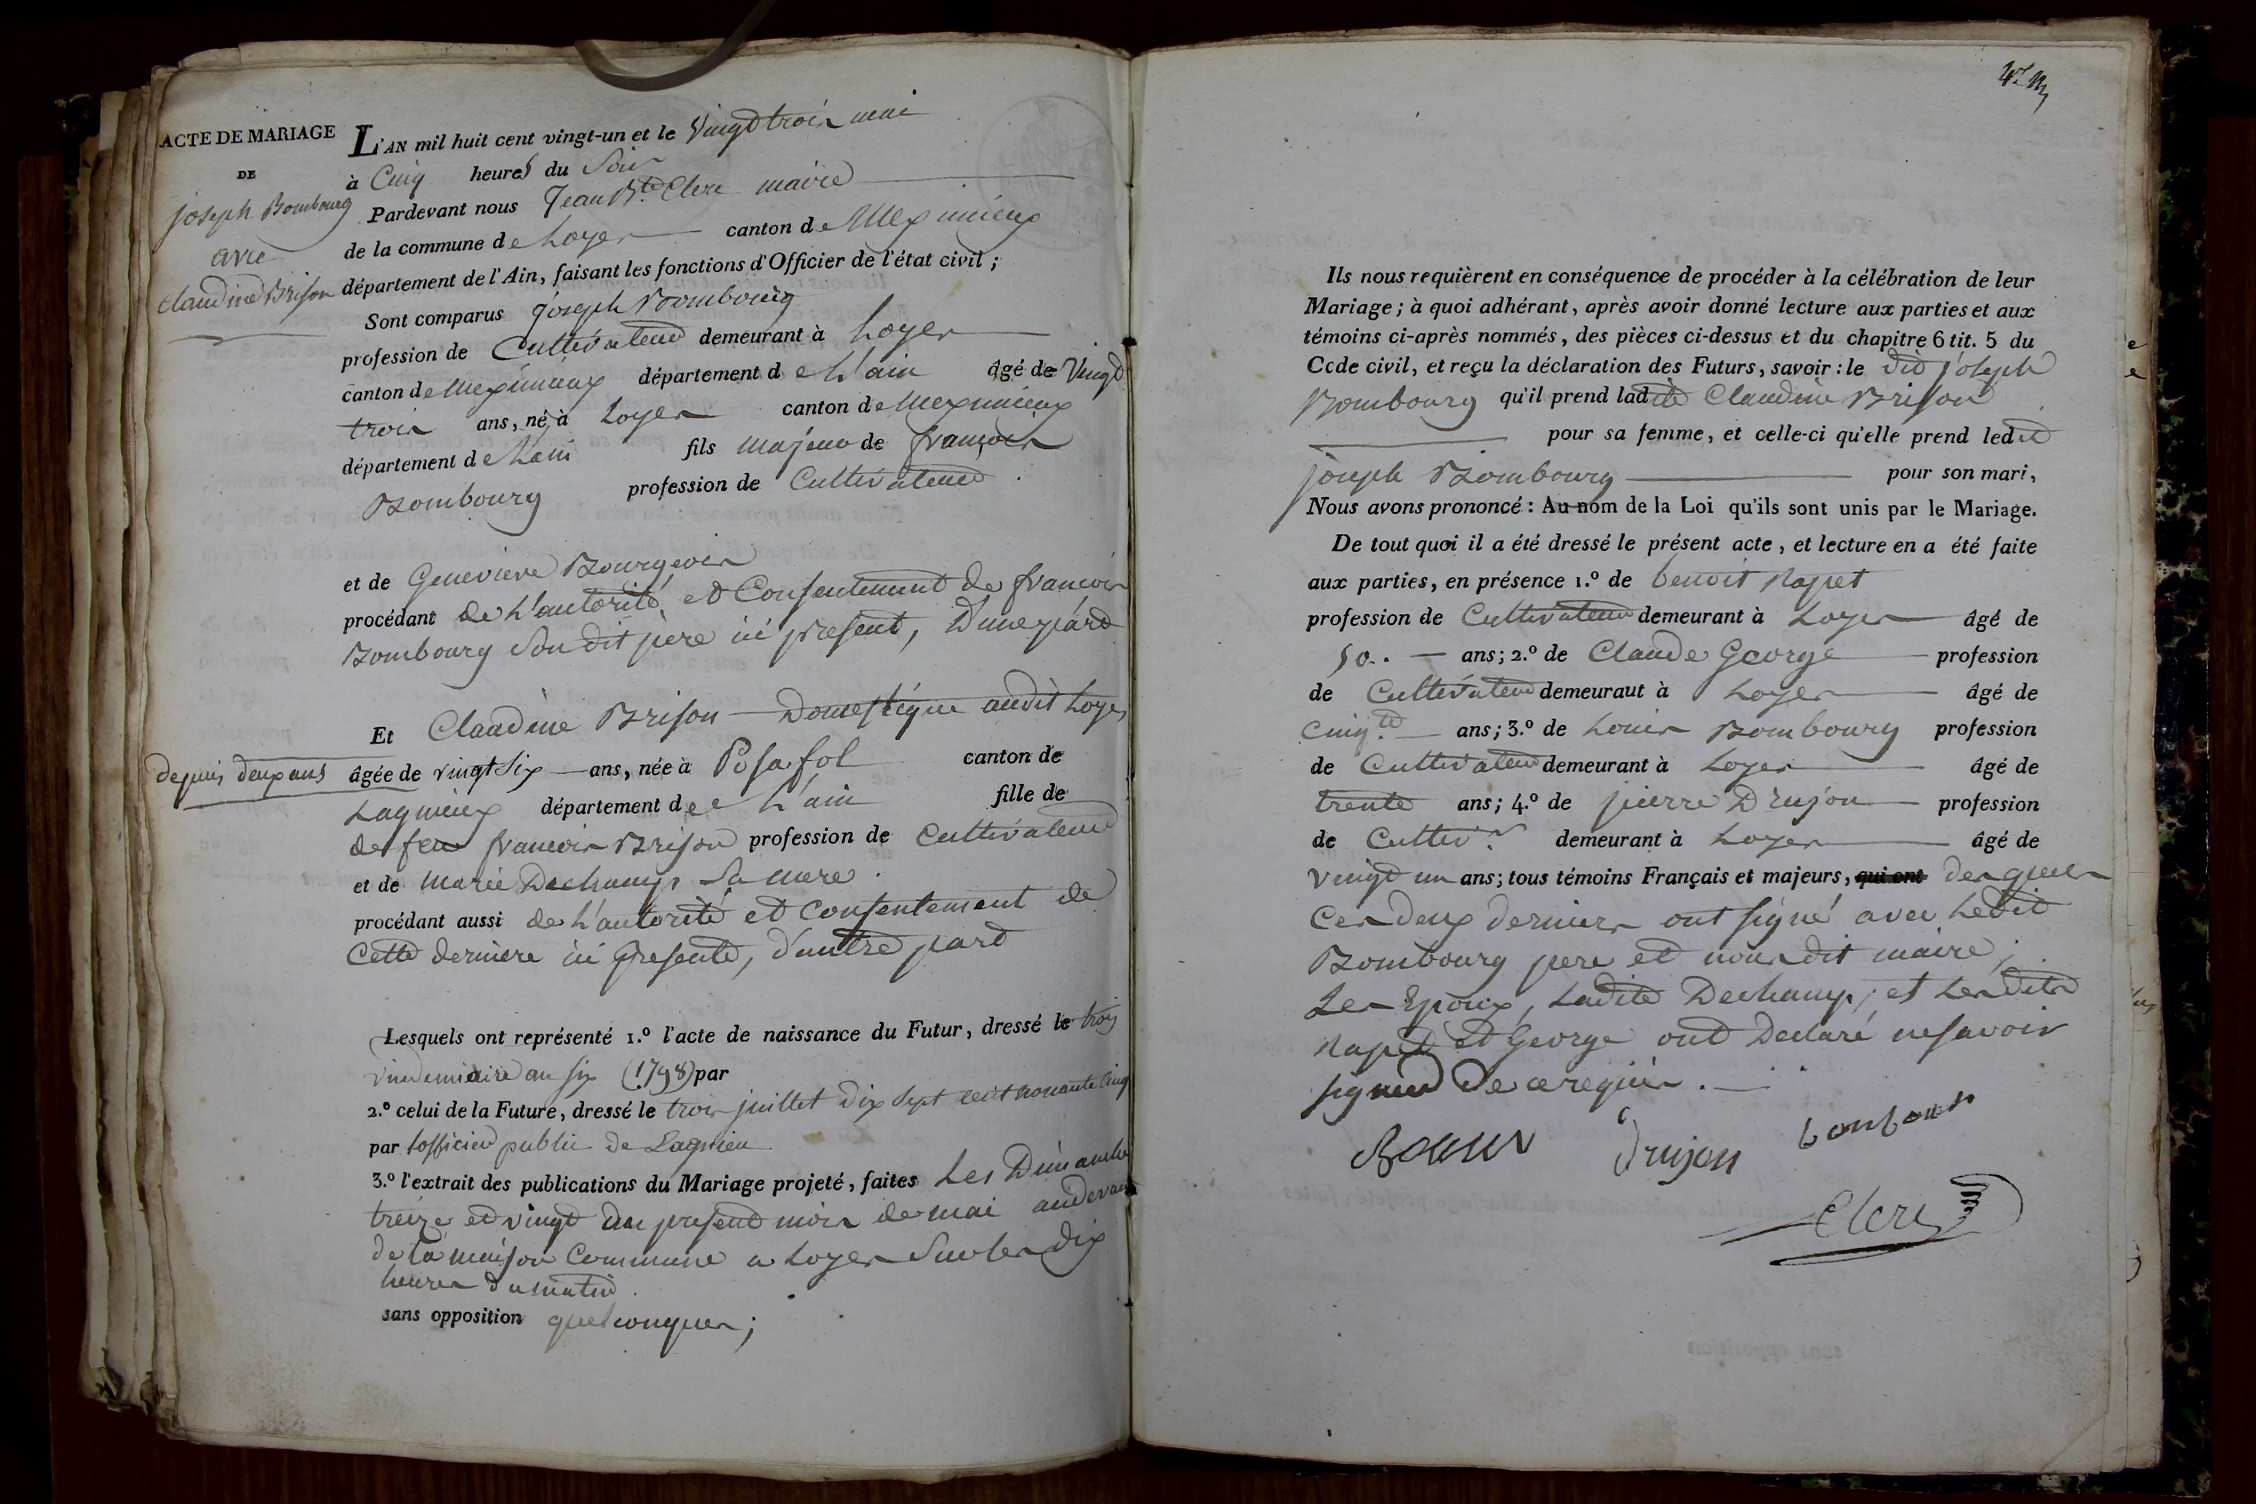 ACTE DE MARIAGE
DE
joseph Bombourg
avec
Claudine Brison
L'AN mil huit cent vingt-un et le Vingt trois mai
à Cinq heures du Soir
Pardevant nous Jean Bte Clerc maire
de la commune de Loyes canton de Meximieux
département de l'Ain, faisant les fonctions d'Officier de l'état civil ;
Sont comparus joseph Bombourg
profession de Cultivateur demeurant à Loyes
canton de Meximieux département de L'ain âgé de Vingt
trois ans, né à Loyes canton de Meximieux
département de L'ain fils majeur de françois
Bombourg profession de Cultivateur
et de Genevieve Bourgeois
procédant de L'autorité et Consentement de françois
Bombourg Son dit père ici présent, D'une part
Et Claudine Brison Domestique audit Loyes
depuis deux ans
âgée de vingt Six ans, née à Posafol canton de
Lagnieux département de L'ain fille de
de feu françois Brison profession de Cultivateur
et de Marie Dechamp Sa mere
procédant aussi de L'autorité et Consentement de
Cette derniere ici présente, d'autre part
Lesquels ont représenté 1.º l'acte de naissance du Futur, dressé le trois
vindemiaire an six (1798) par
2.º celui de la Future, dressé le trois juillet dix Sept cent nonante Cinq
par lofficier public de Lagnieu
3.º l'extrait des publications du Mariage projeté, faites Les Dimanche
treize et vingt du present mois de mai audevant
de la maison Commune a Loyes Sur les Dix
heures du matin
sans opposition quelconques ;
Ils nous requièrent en conséquence de procéder à la célébration de leur
Mariage ; à quoi adhérant, après avoir donné lecture aux parties et aux
témoins ci-après nommés, des pièces ci-dessus et du chapitre 6 tit. 5 du
Code civil, et reçu la déclaration des Futurs, savoir : le dit joseph
Bombourg qu'il prend ladite Claudine Brison
pour sa femme, et celle-ci qu'elle prend ledit
joseph Bombourg pour son mari,
Nous avons prononcé : Au nom de la Loi qu'ils sont unis par le Mariage.
De tout quoi il a été dressé le présent acte, et lecture en a été faite
aux parties, en présence 1.º de benoit Napet
profession de Cultivateur demeurant à Loyes âgé de
50.. ans ; 2.º de Claude George profession
de Cultivateur demeuraut à Loyes âgé de
Cinqte ans ; 3.º de Louis Bombourg profession
de Cultivateur demeurant à Loyes âgé de
trente ans ; 4.º de pierre Drujon profession
de Cultivr demeurant à Loyes âgé de
vingt un ans ; tous témoins Français et majeurs, qui ont desquels
Ces deux derniers ont signé avec Ledit
Bombourg pere et nous dit maire ;
Les Epoux, Ladite Dechamp, et Lesdits
Napet et George ont Declaré ne savoir
signer de ce requis.
Drujon bonbour
Clerc